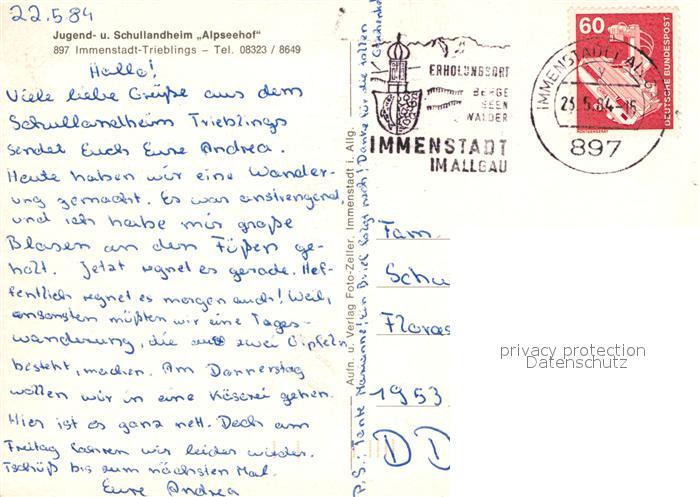 22.5.84
Jugend- u. Schullandheim „Alpseehof"
897 Immenstadt-Trieblings – Tel. 08323 / 8649
Hallo!
Viele liebe Grüße aus dem
Schullandheim Trieblings
sendet Euch Eure Andrea.
Heute haben wir eine Wander-
ung gemacht. Es war anstrengend
und ich habe mir große
Blasen an den Füßen ge-
holt. Jetzt regnet es gerade. Hof-
fentlich regnet es morgen auch! Weil,
ansonsten müßten wir eine Tages-
wanderung, die aus zwei Gipfeln
besteht, machen. Am Donnerstag
wollen wir in eine Käserei gehen.
Hier ist es ganz nett. Doch am
Freitag fahren wir leider wieder.
Tschüß bis zum nächsten Mal.
Eure Andrea
Aufn. u. Verlag Foto-Zeller, Immenstadt i. Allg.
P.S.: Tante Marianne! Ein Brief folgt noch! Danke für die tollen Geschenke
ERHOLUNGSORT
BERGE
SEEN
WÄLDER
IMMENSTADT
IM ALLGÄU
IMMENSTADT, ALLG
23.5.84-15
897
60
DEUTSCHE BUNDESPOST
Fam.
Schu
Floras
1953
DD
privacy protection
Datenschutz